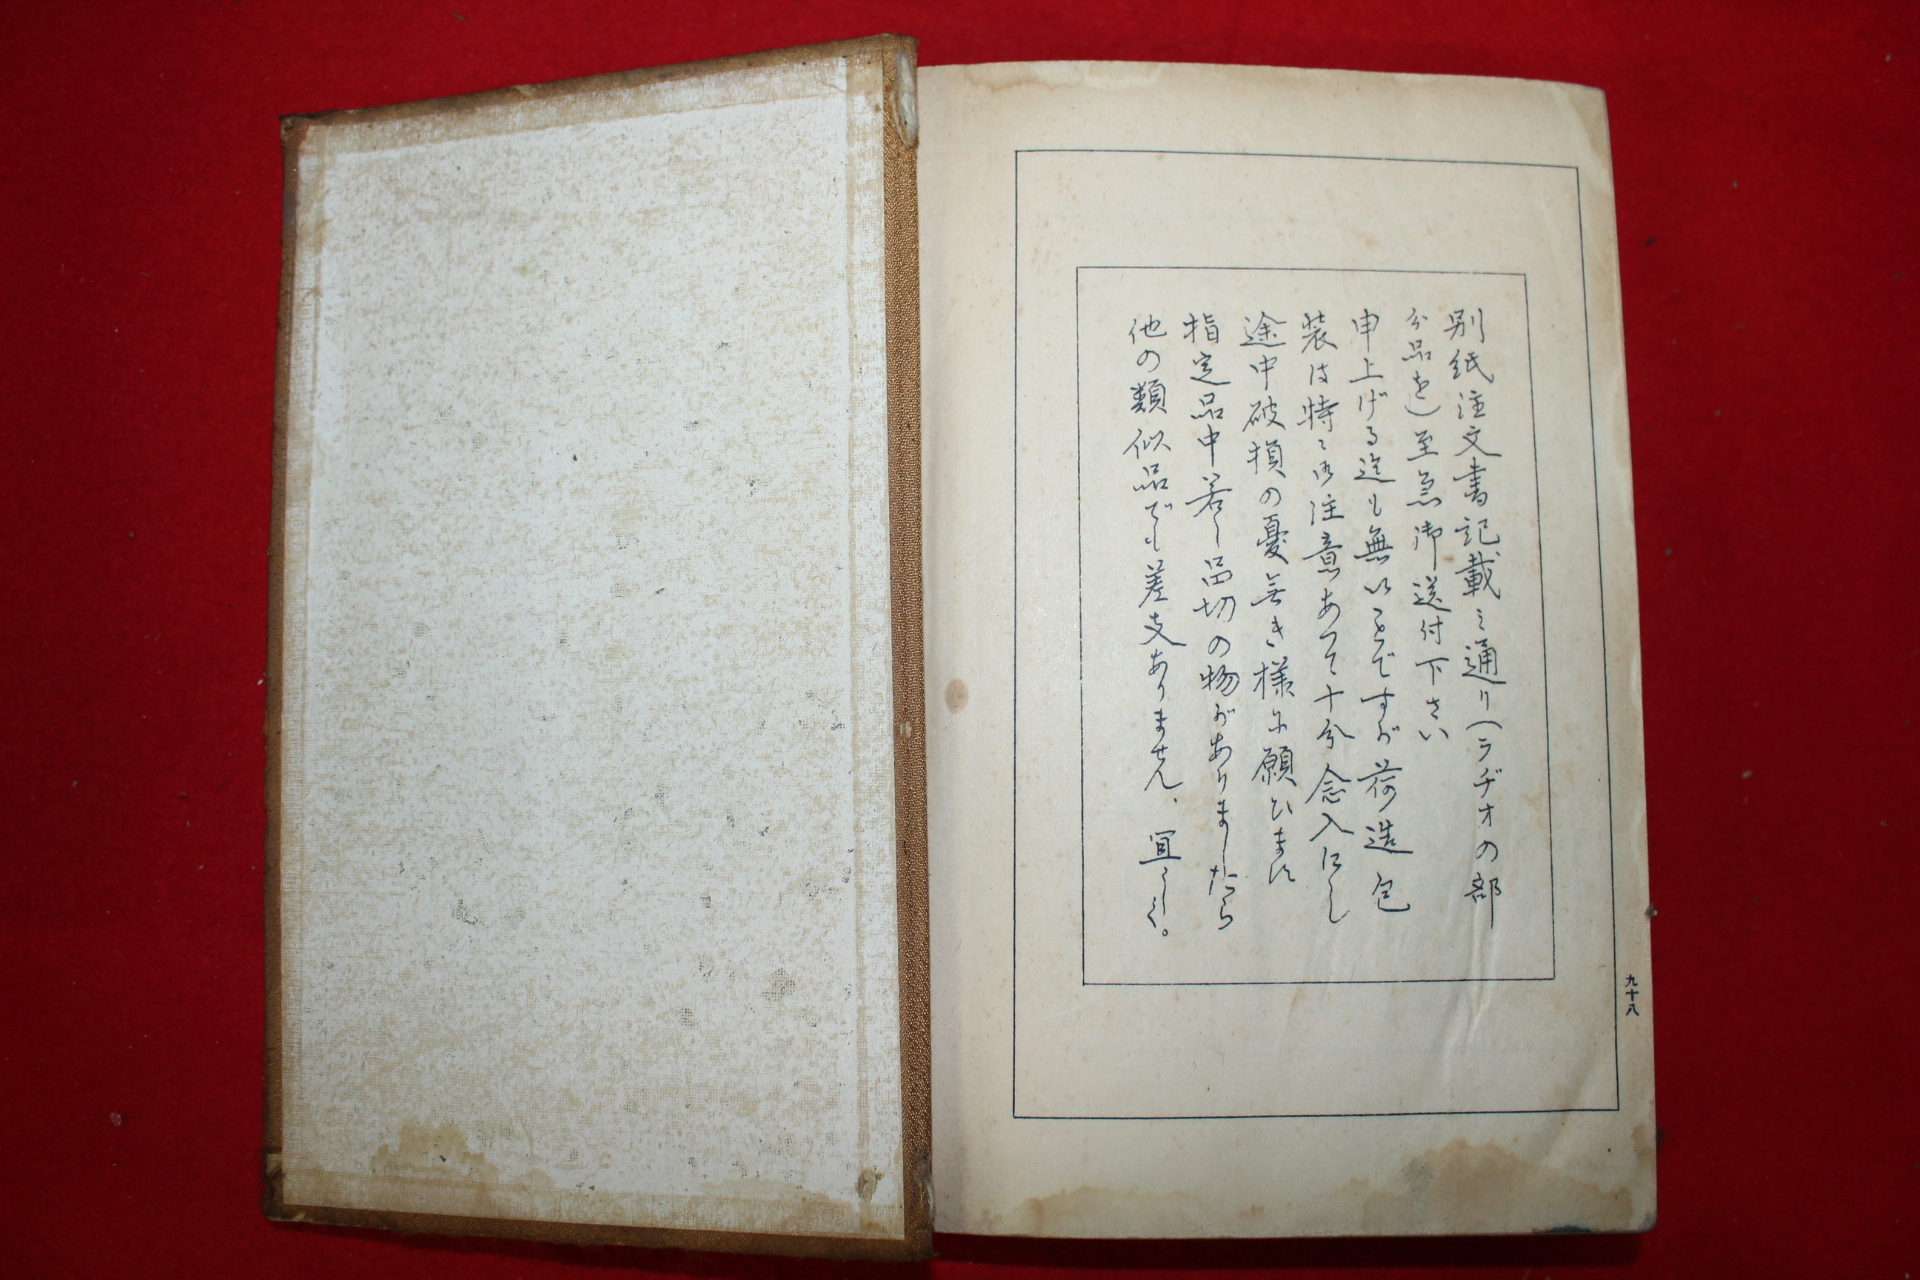 別紙注文書記載ミ通り(ラヂオの部
分品を)至急御送付下さい
申上げる迄も無いことですが荷造包
装は特に御注意あつて十分念入にし
途中破損の憂無き様に願ひます
指定品中若し品切の物がありましたら
他の類似品でも差支ありません、宜しく。
九十八